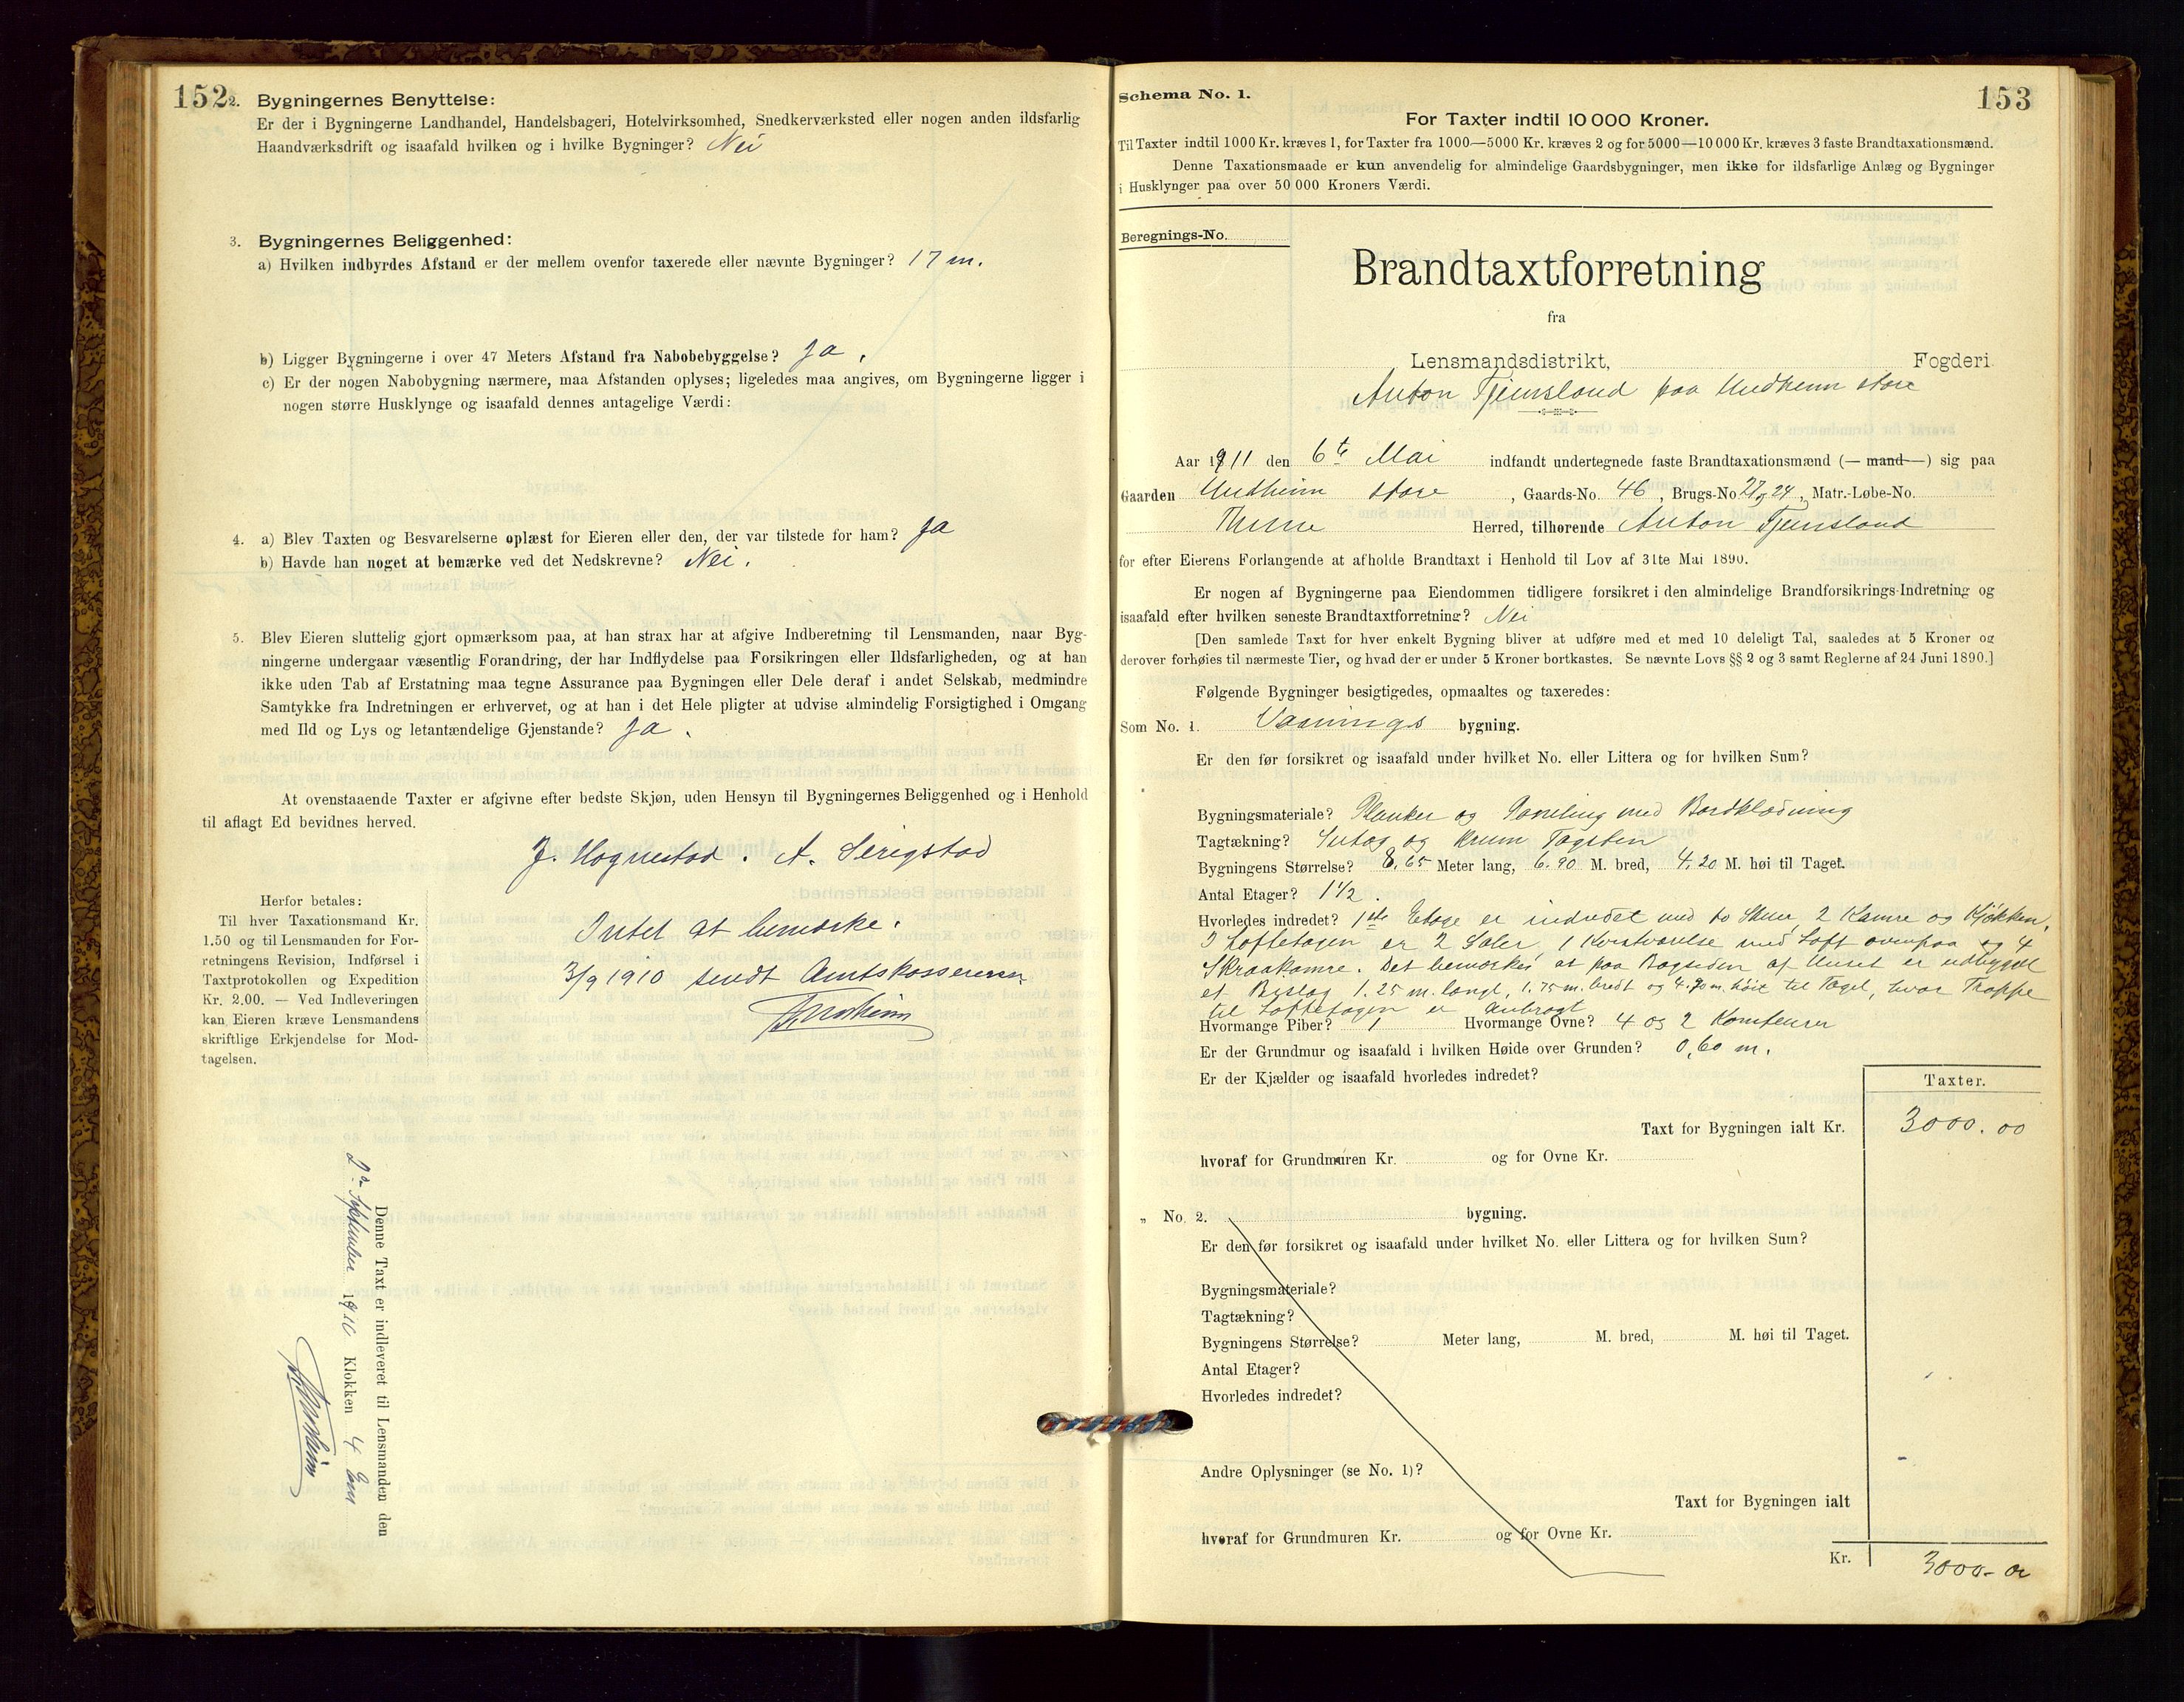 152
2. Bygningernes Benyttelse:
Er der i Bygningerne Landhandel, Handelsbageri, Hotelvirksomhed, Snedkerværksted eller nogen anden ildsfarlig
Haandværksdrift og isaafald hvilken og i hvilke Bygninger? Nei
3. Bygningernes Beliggenhed:
a) Hvilken indbyrdes Afstand er der mellem ovenfor taxerede eller nævnte Bygninger? 17 m.
b) Ligger Bygningerne i over 47 Meters Afstand fra Nabobebyggelse? Ja.
c) Er der nogen Nabobygning nærmere, maa Afstanden oplyses; ligeledes maa angives, om Bygningerne ligger i
nogen større Husklynge og isaafald dennes antagelige Værdi:
4. a) Blev Taxten og Besvarelserne oplæst for Eieren eller den, der var tilstede for ham? Ja
b) Havde han noget at bemærke ved det Nedskrevne? Nei.
5. Blev Eieren sluttelig gjort opmærksom paa, at han strax har at afgive Indberetning til Lensmanden, naar Byg-
ningerne undergaar væsentlig Forandring, der har Indflydelse paa Forsikringen eller Ildsfarligheden, og at han
ikke uden Tab af Erstatning maa tegne Assurance paa Bygningen eller Dele deraf i andet Selskab, medmindre
Samtykke fra Indretningen er erhvervet, og at han i det Hele pligter at udvise almindelig Forsigtighed i Omgang
med Ild og Lys og letantændelige Gjenstande? Ja.
At ovenstaaende Taxter er afgivne efter bedste Skjøn, uden Hensyn til Bygningernes Beliggenhed og i Henhold
til aflagt Ed bevidnes herved.
J. Hognestad. A. Serigstad
Intet at bemærke.
3/9 1910 sendt Amtskassereren
Herfor betales:
Til hver Taxationsmand Kr.
1.50 og til Lensmanden for For-
retningens Revision, Indførsel i
Taxtprotokollen og Expedition
Kr. 2.00. — Ved Indleveringen
kan Eieren kræve Lensmandens
skriftlige Erkjendelse for Mod-
tagelsen.
Denne Taxt er indleveret til Lensmanden den
2den September 1910 Klokken 4 Em
153
Schema No. 1.
For Taxter indtil 10 000 Kroner.
Til Taxter indtil 1000 Kr. kræves 1, for Taxter fra 1000—5000 Kr. kræves 2 og for 5000—10000 Kr. kræves 3 faste Brandtaxationsmænd.
Denne Taxationsmaade er kun anvendelig for almindelige Gaardsbygninger, men ikke for ildsfarlige Anlæg og Bygninger
i Husklynger paa over 50 000 Kroners Værdi.
Beregnings-No.
Brandtaxtforretning
fra
Lensmandsdistrikt, Fogderi
Anton Tjemsland paa Undheim store
Aar 1911 den 6te Mai indfandt undertegnede faste Brandtaxationsmænd (— mand —) sig paa
Gaarden Undheim store, Gaards-No. 46, Brugs-No. 27, 24, Matr.-Løbe-No.
Thime Herred, tilhørende Anton Tjemsland
for efter Eierens Forlangende at afholde Brandtaxt i Henhold til Lov af 31te Mai 1890.
Er nogen af Bygningerne paa Eiendommen tidligere forsikret i den almindelige Brandforsikrings-Indretning og
isaafald efter hvilken seneste Brandtaxtforretning? Nei
[Den samlede Taxt for hver enkelt Bygning bliver at udføre med et med 10 deleligt Tal, saaledes at 5 Kroner og
derover forhøies til nærmeste Tier, og hvad der er under 5 Kroner bortkastes. Se nævnte Lovs §§ 2 og 3 samt Reglerne af 24 Juni 1890.]
Følgende Bygninger besigtigedes, opmaaltes og taxeredes:
Som No. 1. Vaanings bygning.
Er den før forsikret og isaafald under hvilket No. eller Littera og for hvilken Sum?
Bygningsmateriale? Planker og Paneling med Bordklædning
Tagtækning? Sutag og krum Tagsten
Bygningens Størrelse? 8,65 Meter lang, 6.90 M. bred, 4,20 M. høi til Taget.
Antal Etager? 1 1/2.
Hvorledes indredet? 1ste Etage er indredet med to Stuer, 2 Kamre og Kjøkken,
I Loftetagen er 2 Saler, 1 Kvistværelse med Loft ovenpaa og 4
Skraakamre. Det bemærkes at paa Bagsiden af Huset er udbygget
et Bislag 1.25 m. langt, 1.75 m. bredt og 4.20 m. høit til Taget, hvor Trappe
til Loftetagen er Anbragt
Hvormange Piber? 1 Hvormange Ovne? 4 og 2 Komfeurer
Er der Grundmur og isaafald i hvilken Høide over Grunden? 0,60 m.
Er der Kjælder og isaafald hvorledes indredet?
Taxter.
Taxt for Bygningen ialt Kr. 3000.00
hvoraf for Grundmuren Kr. og for Ovne Kr.
„ No. 2. bygning.
Er den før forsikret og isaafald under hvilket No. eller Littera og for hvilken Sum?
Bygningsmateriale?
Tagtækning?
Bygningens Størrelse? Meter lang, M. bred, M. høi til Taget.
Antal Etager?
Hvorledes indredet?
Andre Oplysninger (se No. 1)?
Taxt for Bygningen ialt
hvoraf for Grundmuren Kr. og for Ovne Kr.
Kr. 3000-00